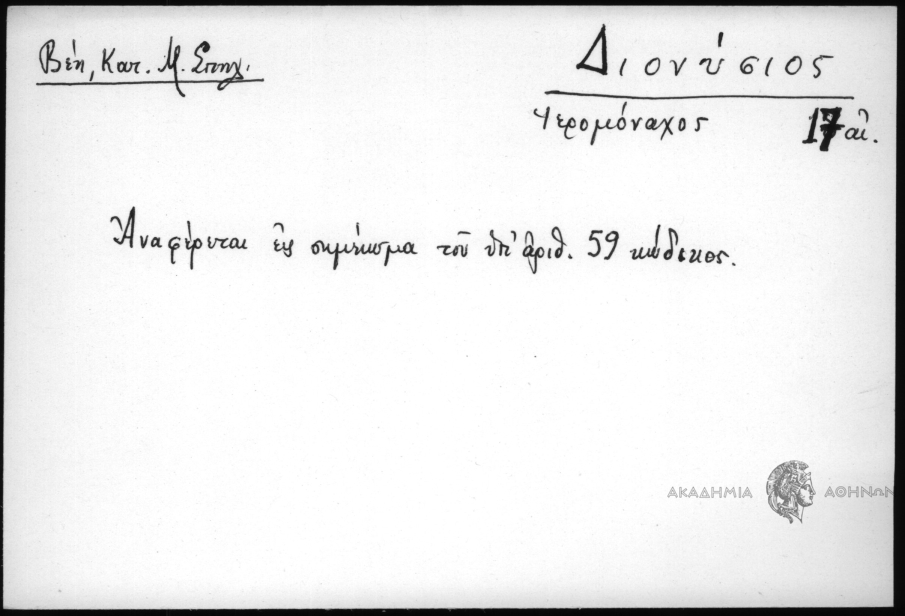 Βέη, Κατ. Μ. Σπηλ.
Διονύσιος
Ἱερομόναχος 17 αἰ.
Ἀναφέρεται εἰς σημείωμα τοῦ ὑπ' ἀριθ. 59 κώδικος.
ΑΚΑΔΗΜΙΑ ΑΘΗΝΩΝ